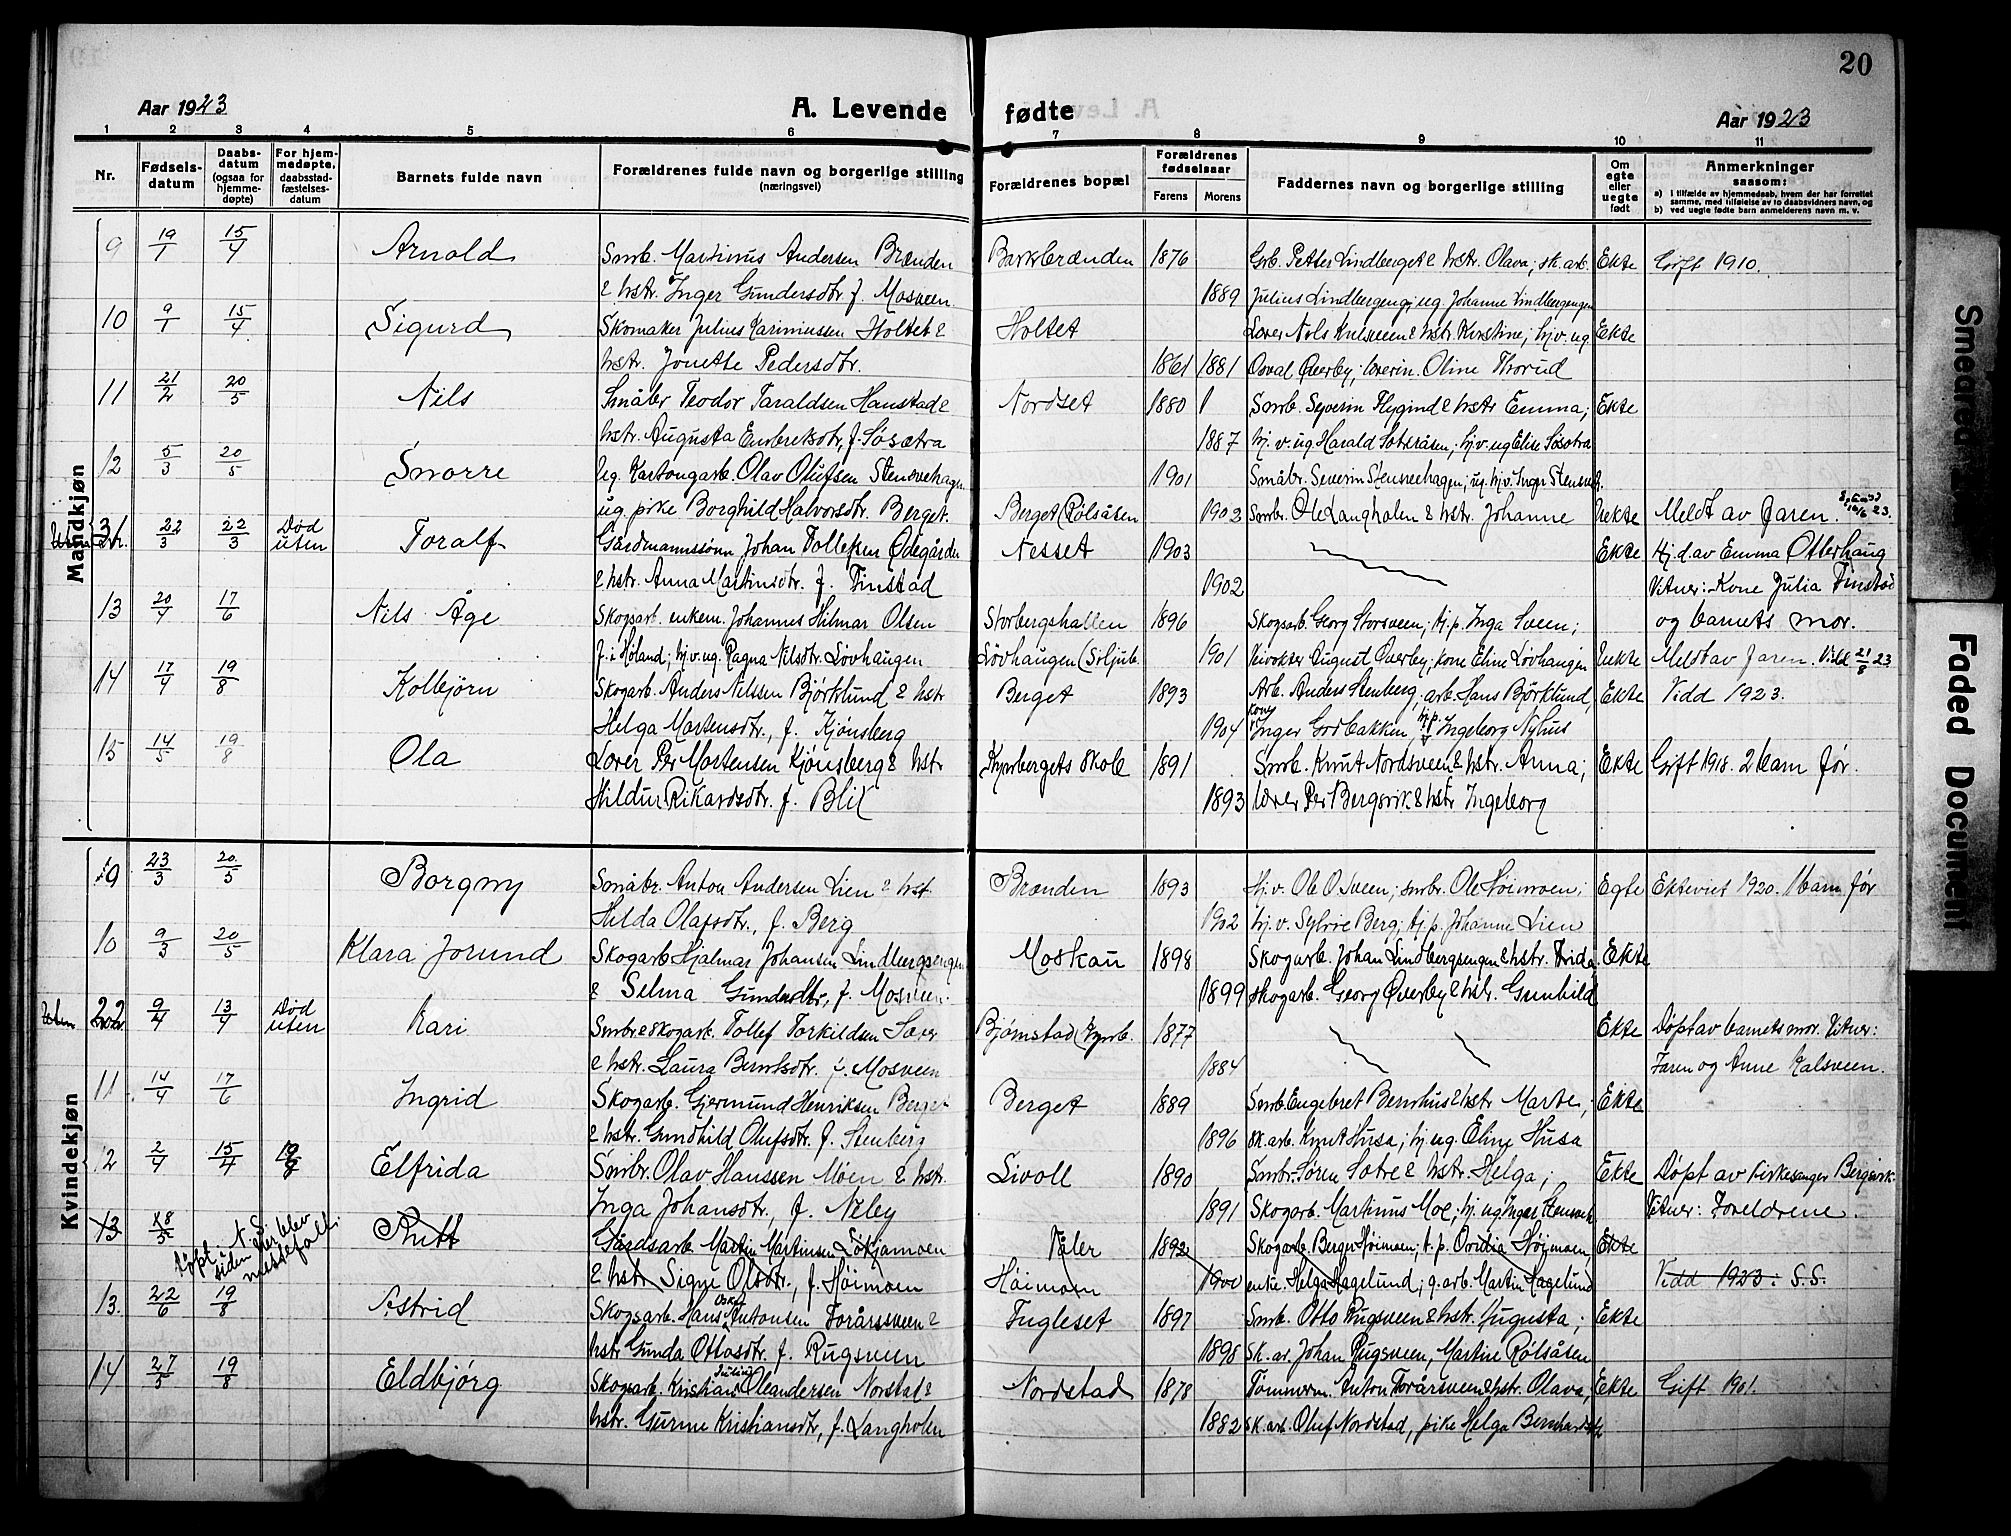 20
Aar 1923
A. Levende fødte
Aar 1923
1 2 3 4 5 6 7 8 9 10 11
Nr.
Fødsels-
datum
Daabs-
datum
(ogsaa for
hjemme-
døpte)
For hjem-
medøpte,
daabsstad-
fæstelses-
datum
Barnets fulde navn
Forældrenes fulde navn og borgerlige stilling
(næringsvei)
Forældrenes bopæl
Forældrenes
fødselsaar
Farens Morens
Faddernes navn og borgerlige stilling
Om
egte
eller
uegte
født
Anmerkninger
saasom:
a) i tilfælde av hjemmedaab, hvem der har forrettet
samme, med tilføielse av to daabsvidners navn, og
b) ved uegte fødte barn anmelderens navn m. v.
Mandkjøn
9 19/1 15/4 Arnold Smbr. Martinus Andersen Brænden Barkbrænden 1876 Grb. Petter Lindberget & hstr. Olava; sk.arb. Ekte Gift 1910.
& hstr. Inger Gundersdtr. f. Mosveen. 1889 Julius Lindbergeng; ug. Johanne Lindbergengen
10 9/1 15/4 Sigurd Skomaker Julius Karinussen Holtet & Holtet Lærer Nils Kulsveen & hstr. Kirstine; hj.v. ug. Ekte
hstr. Jonette Pedersdtr. 1861 1881 Osval Øverby; lærerin. Oline Thorud
11 21/2 20/5 Nils Småbr. Teodor Taraldsen Hanstad & Nordset 1880 Smbr. Syverin Flygind & hstr. Emma; Ekte
hstr. Augusta Embretsdtr. f. Søsætra 1887 hj. v. ug. Harald Sætråsen; hj.v. ug. Elise Søsætra
12 5/3 20/5 Snorre Ug. Kartongarb. Olav Olufsen Stensvehagen 1901 Småbr. Severin Stensvehagen; ug. hj.v. Inger Stensveh.
ug. pike Borghild Halvorsdtr. Berget. Berget (Rølsåsen 1902 Smbr. Ole Langholen & hstr. Johanne Uekte Meldt av Faren.
Uten nr. 31 22/3 22/3 Død uten Toralf Gårdmannssønn Johan Tollefsen Ødegården Nesset 1903 Ekte Hj.d. av Emma Otterhaug
& hstr. Anna Martinsdtr. f. Finstad 1902 Vitner: Kone Julia Finstad
13 20/4 17/6 Nils Åge Skogarb. enkem. Johannes Hilmar Olsen Storbergshallen 1896 Skogsarb. Georg Storsveen; hj.p. Inga Sveen; og barnets mor.
f. i Høland; hj.v. ug. Ragna Nilsdtr. Løvhaugen Løvhaugen (Soljub. 1901 August Øverby; kone Eline Løvhaugen Uekte Meldt av Faren. Vidd 21/8 23
14 17/4 19/8 Kolbjørn Skogarb. Anders Nilssen Bjørklund & hstr. Berget 1893 Arb. Anders Stenberg; arb. Hans Bjørklund, Ekte Vidd 1923.
Helga Martensdtr., f. Kjønsberg 1904 kone Inger Godbakken, hj.p. Ingeborg Nyhus
15 14/5 19/8 Ola Lærer Per Martensen Kjønsberg & hstr. Kynsbergets skole 1891 Smb. Knut Nordsveen & hstr. Anna; Ekte Gift 1918. 2 barn før.
Hildur Rikardsdtr. f. Blik 1893 lærer Per Bergsvik & hstr. Ingeborg
Kvindekjøn
9 23/3 20/5 Borgny Småbr. Anton Andersen Lien & hstr. Brænden 1893 Hj.v. Ole Osveen; smbr. Ole Høimoen; Egte Ekteviet 1920. 1 barn før
Hilda Olafsdtr., f. Berg 1902 hj.v. Sylvie Berg; hj.p. Johanne Lien
10 9/3 20/5 Klara Jorund Skogarb. Hjalmar Johansen Lindbergsengen Moskau 1898 Skogarb. Johan Lindbergsengen & hstr. Frida Ekte
& Selma Gundersdtr., f. Mosveen. 1899 skogarb. Georg Øverby & hstr. Gunhild
Uten nr. 2 9/4 13/4 Død uten Kari Smbr. & skogark. Tollef Torkildsen Sæer Bjørnstad (Kynsb. 1877 Ekte Døpt av barnets mor. Vitner:
& hstr. Laura Berntsdtr. f. Mosveen 1884 Faren og Anne Kalsveen.
11. 14/4 17/6 Ingrid Skogarb. Gjermund Henriksen Berget Berget 1889 Smb. Engebret Bernhus & hstr. Marte; Ekte
& hstr. Gundhild Olufsdtr. f. Stenberg 1896 sk.arb. Knut Husa; hj. ug. Eline Husa
12 2/4 15/4 19/8 Elfrida Småbr. Olav Hanssen Moen & hstr. Livoll 1890 Smbr. Søren Sætre & hstr. Helga; Ekte Døpt av kirkesanger Bergsvik.
Inga Johansdtr., f. Neby 1891 Skogarb. Martinus Moe; hj. ug. Inger Stensveh. Vitner: Foreldrene.
13 18/5 Rutt Gårdsarb. Martin Martinsen Løkjamoen Våler 1892 Skogarb. Berger Høimoen; t. p. Ovidia Høimoen, Ekte
Døpt N. S. siden der blev messefall.
& hstr. Signe Olsdtr., f. Høimoen Høimoen 1900 enke Helga Hagelund; g.arb. Martin Hagelund Vidd 1923: S.S.
13. 22/6 19/8 Astrid Skogsarb. Hans Oskar Antonsen Torårssveen & Fugleset 1897 Smb. Otto Rugsveen & hstr. Augusta; Ekte
hstr. Gunda Ottosdtr. f. Rugsveen 1898 sk.ar. Johan Rugsveen, Martine Rølsåsen
14 27/5 19/8 Eldbjørg Skogsarb. Kristian Julius Oleandersen Norstad & Nordstad 1878 Tømmerm. Anton Torårsveen & hstr. Olava, Ekte Gift 1901.
hstr. Gurine Kristiansdtr., f. Langholen 1882 sk.arb. Oluf Nordstad, pike Helga
Smeared
Faded Document